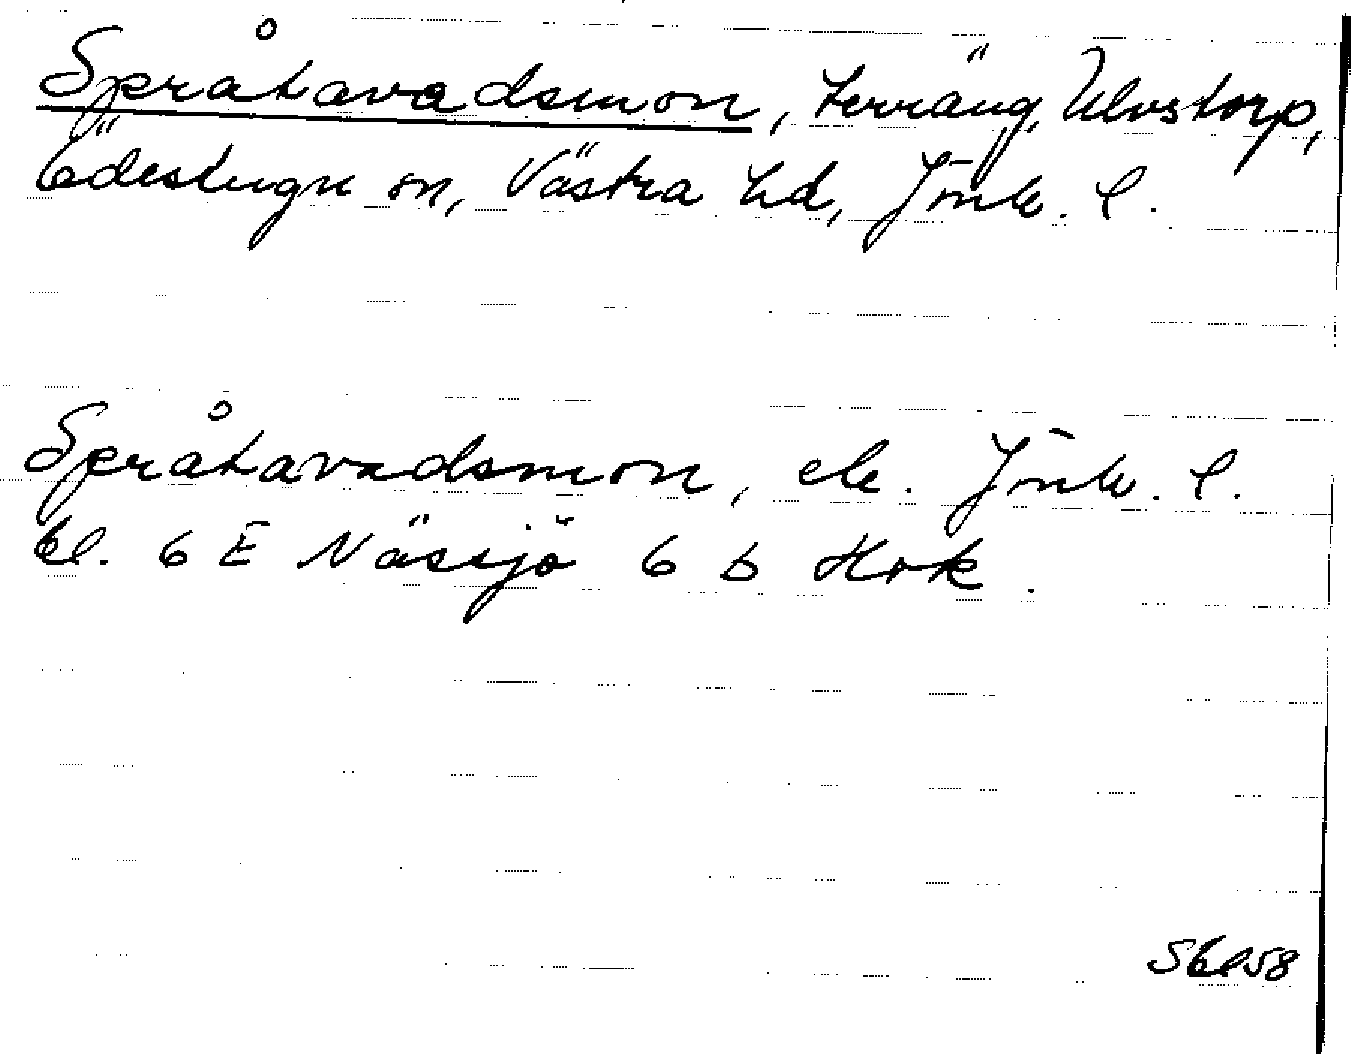 Språkavadsmon, terräng, Ulvstorp,
Ödestugu sn, Västra hd, Jönk. l.
Språkavadsmon, ek. Jönk. l.
bl. 6 E Nässjö 6 b Hok.
Sbl58